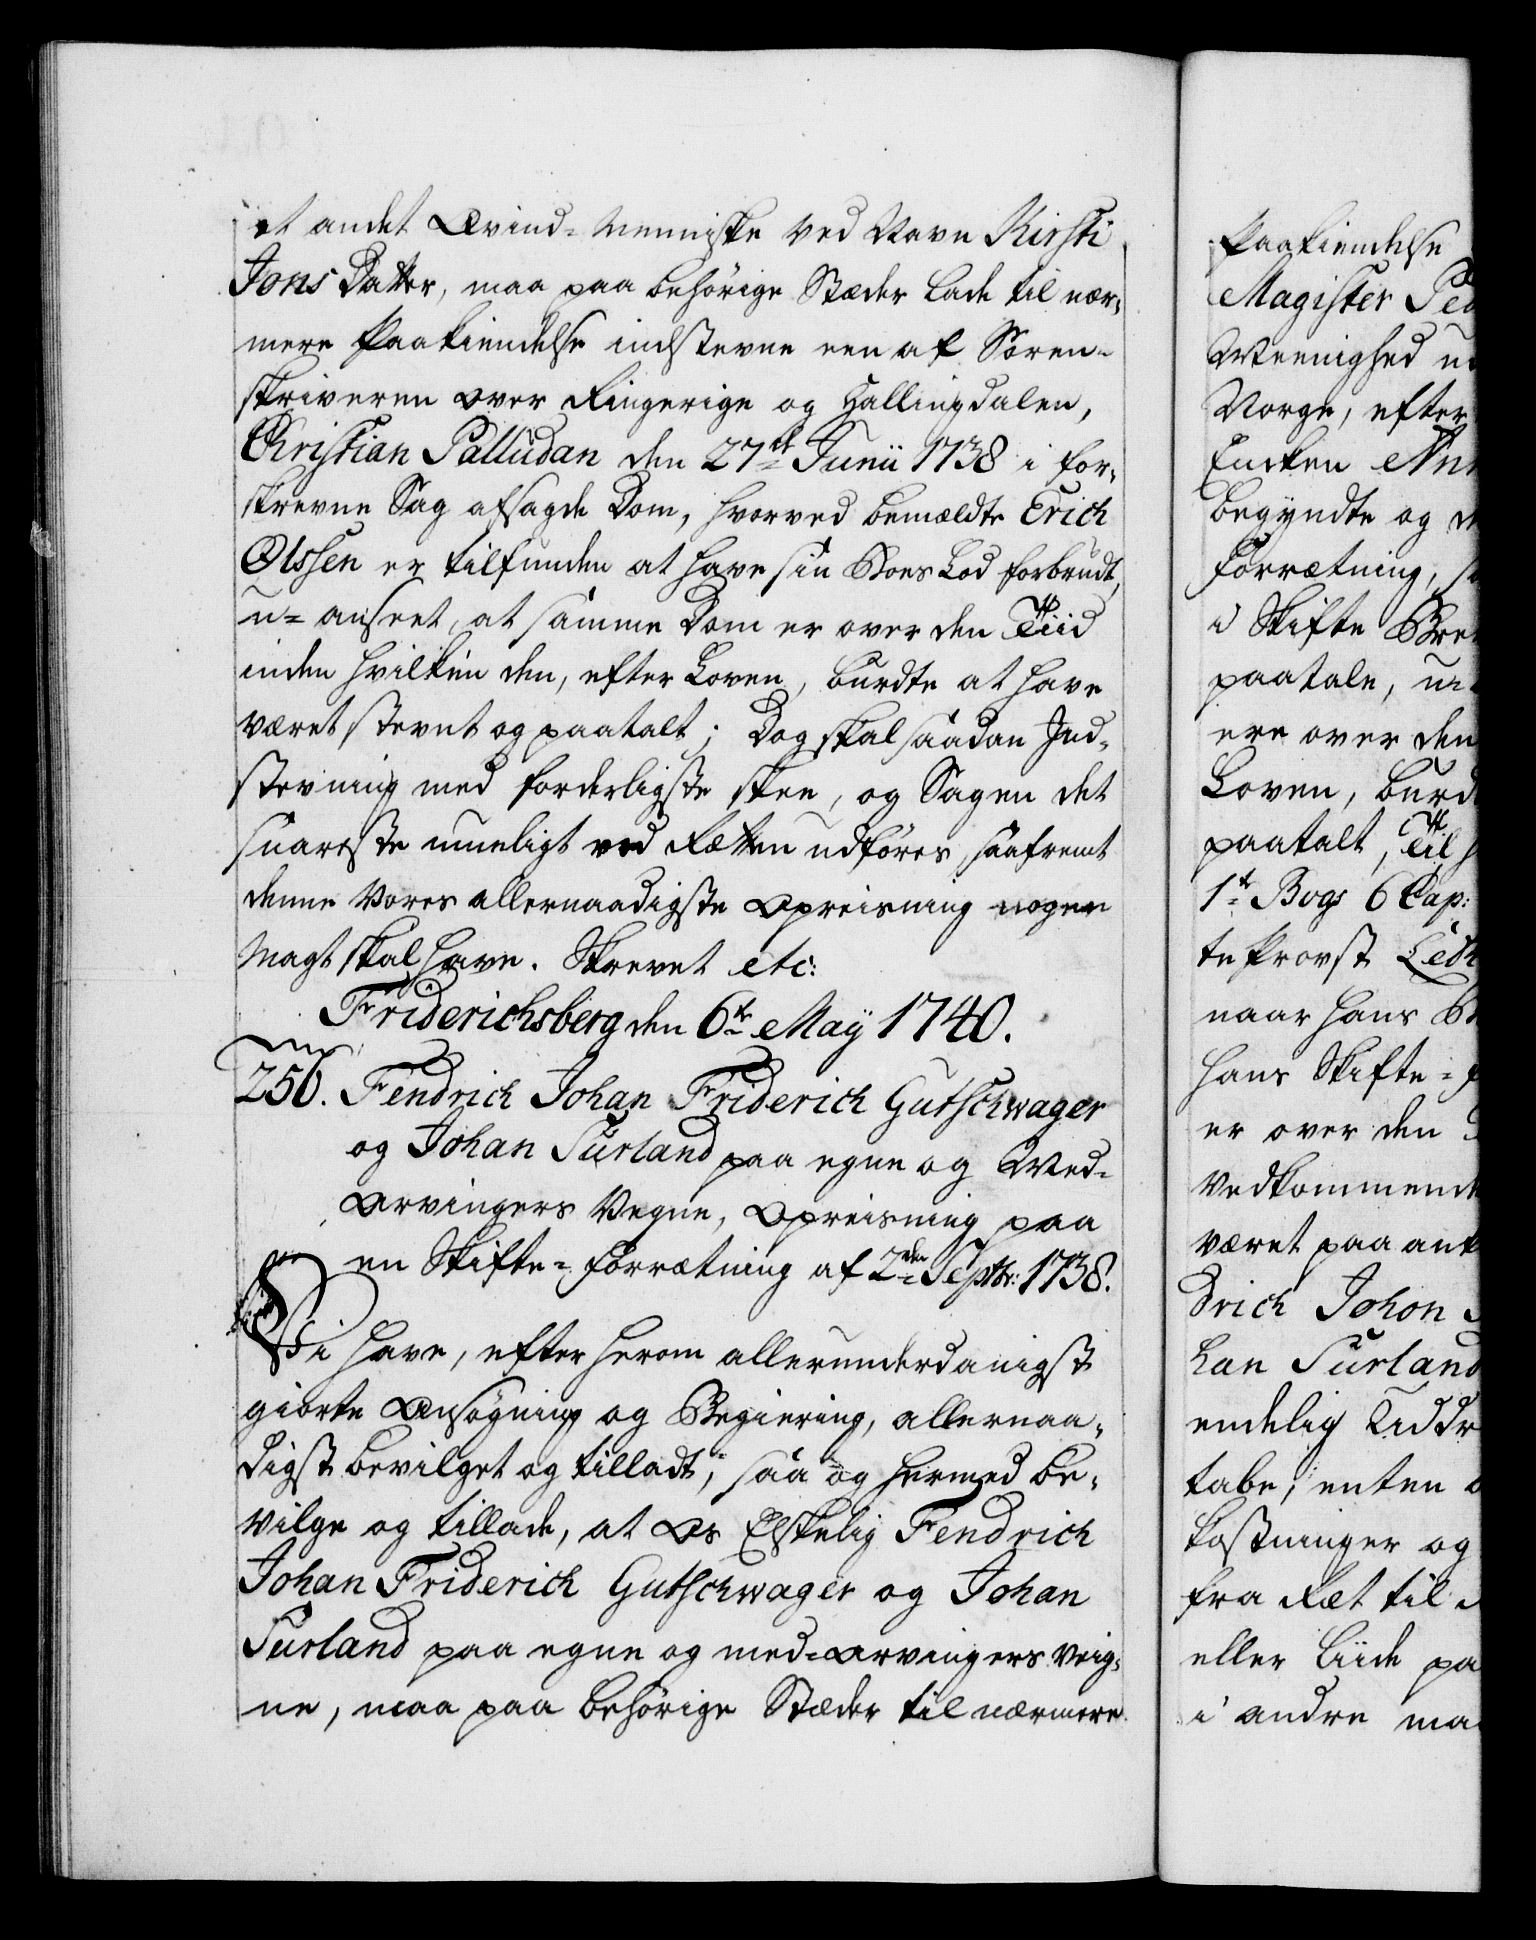 et andet Qvind-Menniske ved Navn Kirsti
Jons Datter, maa paa behörige Stæder lade til nær-
mere Paakiendelse indstevne een af Soren-
skriveren over Ringerige og Hallingdalen,
Christian Palludan den 27de Junii 1738 i for-
skrevne Sag afsagde Dom, hvorved bemældte Erich
Olssen er tilfunden at have sin Boes Lod forbrudt,
u-anseet, at samme Dom er over den Tiid
inden hvilken den, efter Loven, burdte at have
været stevnt og paatalt; Dog skal saadan Ind-
stevning med forderligste skee, og Sagen det
snareste mueligt ved Retten udföres, saafremt
denne Vores allernaadigste Opreisning nogen
Magt skal have. Skrevet etc:
Friderichsberg den 6te May 1740.
256. Fendrich Johan Friderich Gutschwager
og Johan Surland paa egne og Med-
Arvingers Vegne, Opreisning paa
en Skifte-Forretning af 2den Septbr: 1738.
Vi have, efter herom allerunderdanigst
giorte Ansögning og Begiering, allernaa-
digst bevilget og tilladt, saa og hermed be-
vilge og tillade, at Os Elskelig Fendrich
Johan Friderich Gutschwager og Johan
Surland paa egne og med-Arvingers veig-
ne, maa paa behörige Stæder til nærmere
Paakiendelse
Magister Ped
Meenighed u
Norge, efter
Encken Ann
begyndte og
Forretning,
i Skifte Bre
paatale,
ere over den
Loven, burd
paatalt, Til
1te Bogs 6 Cap:
te Provst
naar hans
hans Skifte-
er over den
vedkommend
været paa ank
drich Johan
han Surland
endelig
tabe, enten
kostninger og
fra Ret til
eller liide pa
i andre ma